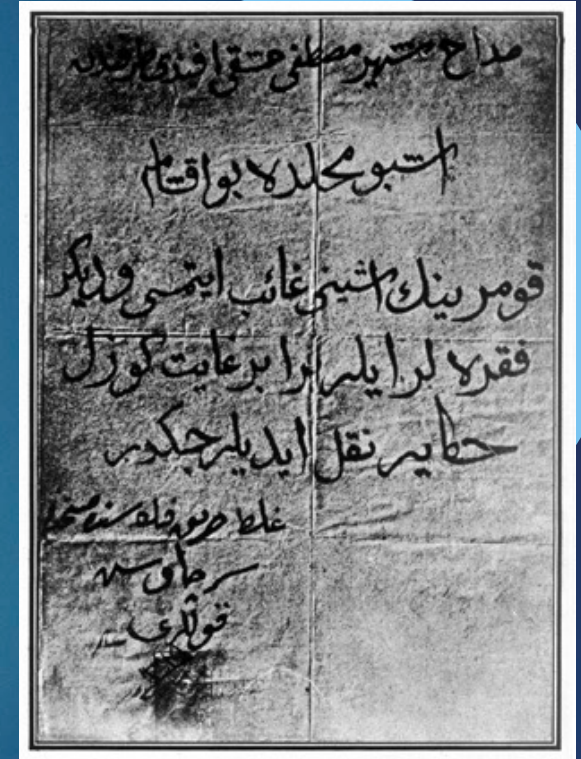 مداح شهير مصطفى عشقى افندى طرفندن
اشبو محلده بو اقشام
قومرينك اشينى غائب ايتمسى و ديكر
فقره لر ايله برابر غايت كوزل
حكايه نقل ايديله جكدر
غلطه حريق قله سنده
سر
قوللرى